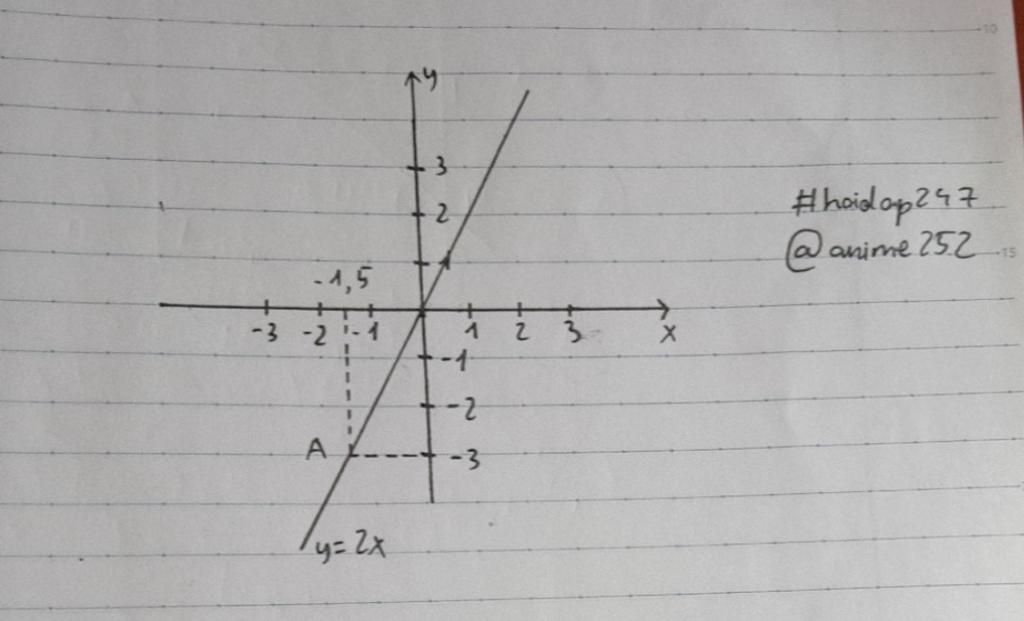 10
y
3
2
1
#hoidap247
@anime252
15
-1,5
-3 -2 -1 1 2 3 x
-1
-2
A -3
y=2x